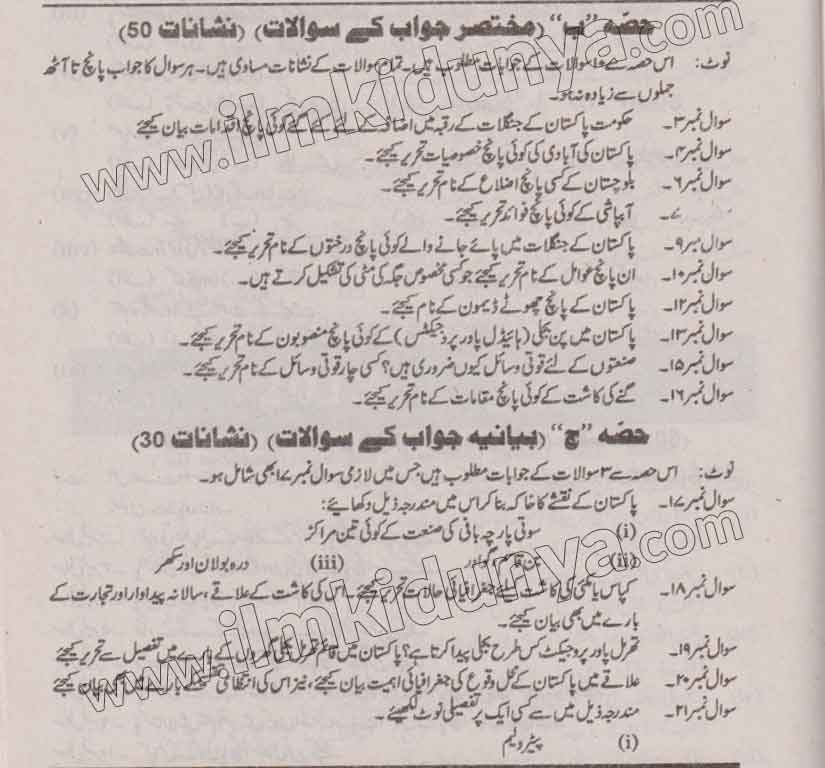 حصّہ "ب" (مختصر جواب کے سوالات) (نشانات 50)
نوٹ: اس حصہ سے ۱۰ سوالات کے جوابات مطلوب ہیں۔ تمام سوالات کے نشانات مساوی ہیں۔ ہر سوال کا جواب پانچ تا آٹھ
جملوں سے زیادہ نہ ہو۔
سوال نمبر۳۔ حکومت پاکستان کے جنگلات کے رقبہ میں اضافہ کے لئے کئے گئے کوئی پانچ اقدامات بیان کیجئے
سوال نمبر۴۔ پاکستان کی آبادی کی کوئی پانچ خصوصیات تحریر کیجئے۔
سوال نمبر۶۔ بلوچستان کے کسی پانچ اضلاع کے نام تحریر کیجئے۔
۷۔ آبپاشی کے کوئی پانچ فوائد تحریر کیجئے۔
سوال نمبر۹۔ پاکستان کے جنگلات میں پائے جانے والے کوئی پانچ درختوں کے نام تحریر کیجئے۔
سوال نمبر۱۰۔ ان پانچ عوامل کے نام تحریر کیجئے جو کسی مخصوص جگہ کی مٹی کی تشکیل کرتے ہیں۔
سوال نمبر۱۲۔ پاکستان کے پانچ چھوٹے ڈیموں کے نام کیجئے۔
سوال نمبر۱۳۔ پاکستان میں پن بجلی (ہائیڈل پاور پروجیکٹس) کے کوئی پانچ منصوبوں کے نام تحریر کیجئے۔
سوال نمبر۱۵۔ صنعتوں کے لئے قوتی وسائل کیوں ضروری ہیں؟ کسی چار قوتی وسائل کے نام تحریر کیجئے۔
سوال نمبر۱۶۔ گنے کی کاشت کے کوئی پانچ مقامات کے نام تحریر کیجئے۔
حصّہ "ج" (بیانیہ جواب کے سوالات) (نشانات 30)
نوٹ: اس حصہ سے ۳ سوالات کے جوابات مطلوب ہیں جس میں لازمی سوال نمبر ۱۷ بھی شامل ہو۔
سوال نمبر۱۷۔ پاکستان کے نقشے کا خاکہ بنا کر اس میں مندرجہ ذیل دکھایئے:
(i) سوتی پارچہ بافی کی صنعت کے کوئی تین مراکز
(ii) بن قاسم، گوادر (iii) درہ بولان اور سکھر
سوال نمبر۱۸۔ کپاس یا مکئی کی کاشت کیلئے جغرافیائی حالات تحریر کیجئے۔ اس کی کاشت کے علاقے، سالانہ پیداوار اور تجارت کے
بارے میں بھی بیان کیجئے۔
سوال نمبر۱۹۔ تھرمل پاور پروجیکٹ کس طرح بجلی پیدا کرتا ہے؟ پاکستان میں قائم تھرمل بجلی گھروں کے بارے میں تفصیل سے تحریر کیجئے
سوال نمبر۲۰۔ علاقے میں پاکستان کے محل وقوع کی جغرافیائی اہمیت بیان کیجئے، نیز اس کی انتظامی کے بارے میں بھی بیان کیجئے
سوال نمبر۲۱۔ مندرجہ ذیل میں سے کسی ایک پر تفصیلی نوٹ لکھیئے۔
(i) پیٹرولیم
www.ilmkidunya.com
www.ilmkidunya.com
www.ilmkidunya.com